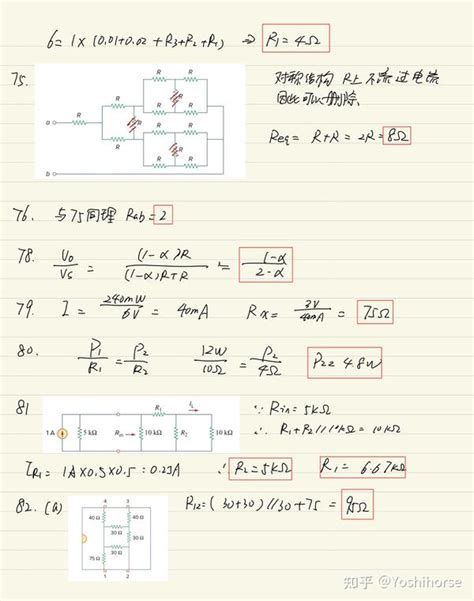 6 = 1 × (0.01+0.02 + R3+R2+R1) ⇒ R1 = 4Ω
75.
R R
R R
R R
a R R
R R
R R
R
b
对称结构 R上不流过电流
因此可以删除.
Req = R+R = 2R = 8Ω
76. 与75同理 Rab = 2
78. Vo/Vs = (1-α)R/((1-α)R+R) = (1-α)/(2-α)
79. I = 240mW/6V = 40mA Rx = 3V/40mA = 75Ω
80. P1/R1 = P2/R2 12W/10Ω = P2/4Ω P2 = 4.8W
81
R1 Ix
1 A 5 kΩ Rin 10 kΩ R2 10 kΩ
∵ Rin = 5kΩ
∴ R1+R2//10kΩ = 10kΩ
IR1 = 1A×0.5×0.5 = 0.25A ∴ R2 = 5kΩ R1 = 6.67kΩ
82. (a)
4 3
40 Ω 40 Ω
30 Ω
30 Ω
30 Ω
75 Ω
1 2
R12 = (30+30)//30+75 = 95Ω
知乎 @Yoshihorse